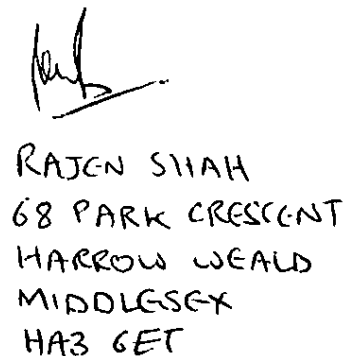 RAJEN SHAH
68 PARK CRESCENT
HARROW WEALD
MIDDLESEX
HA3 6ET